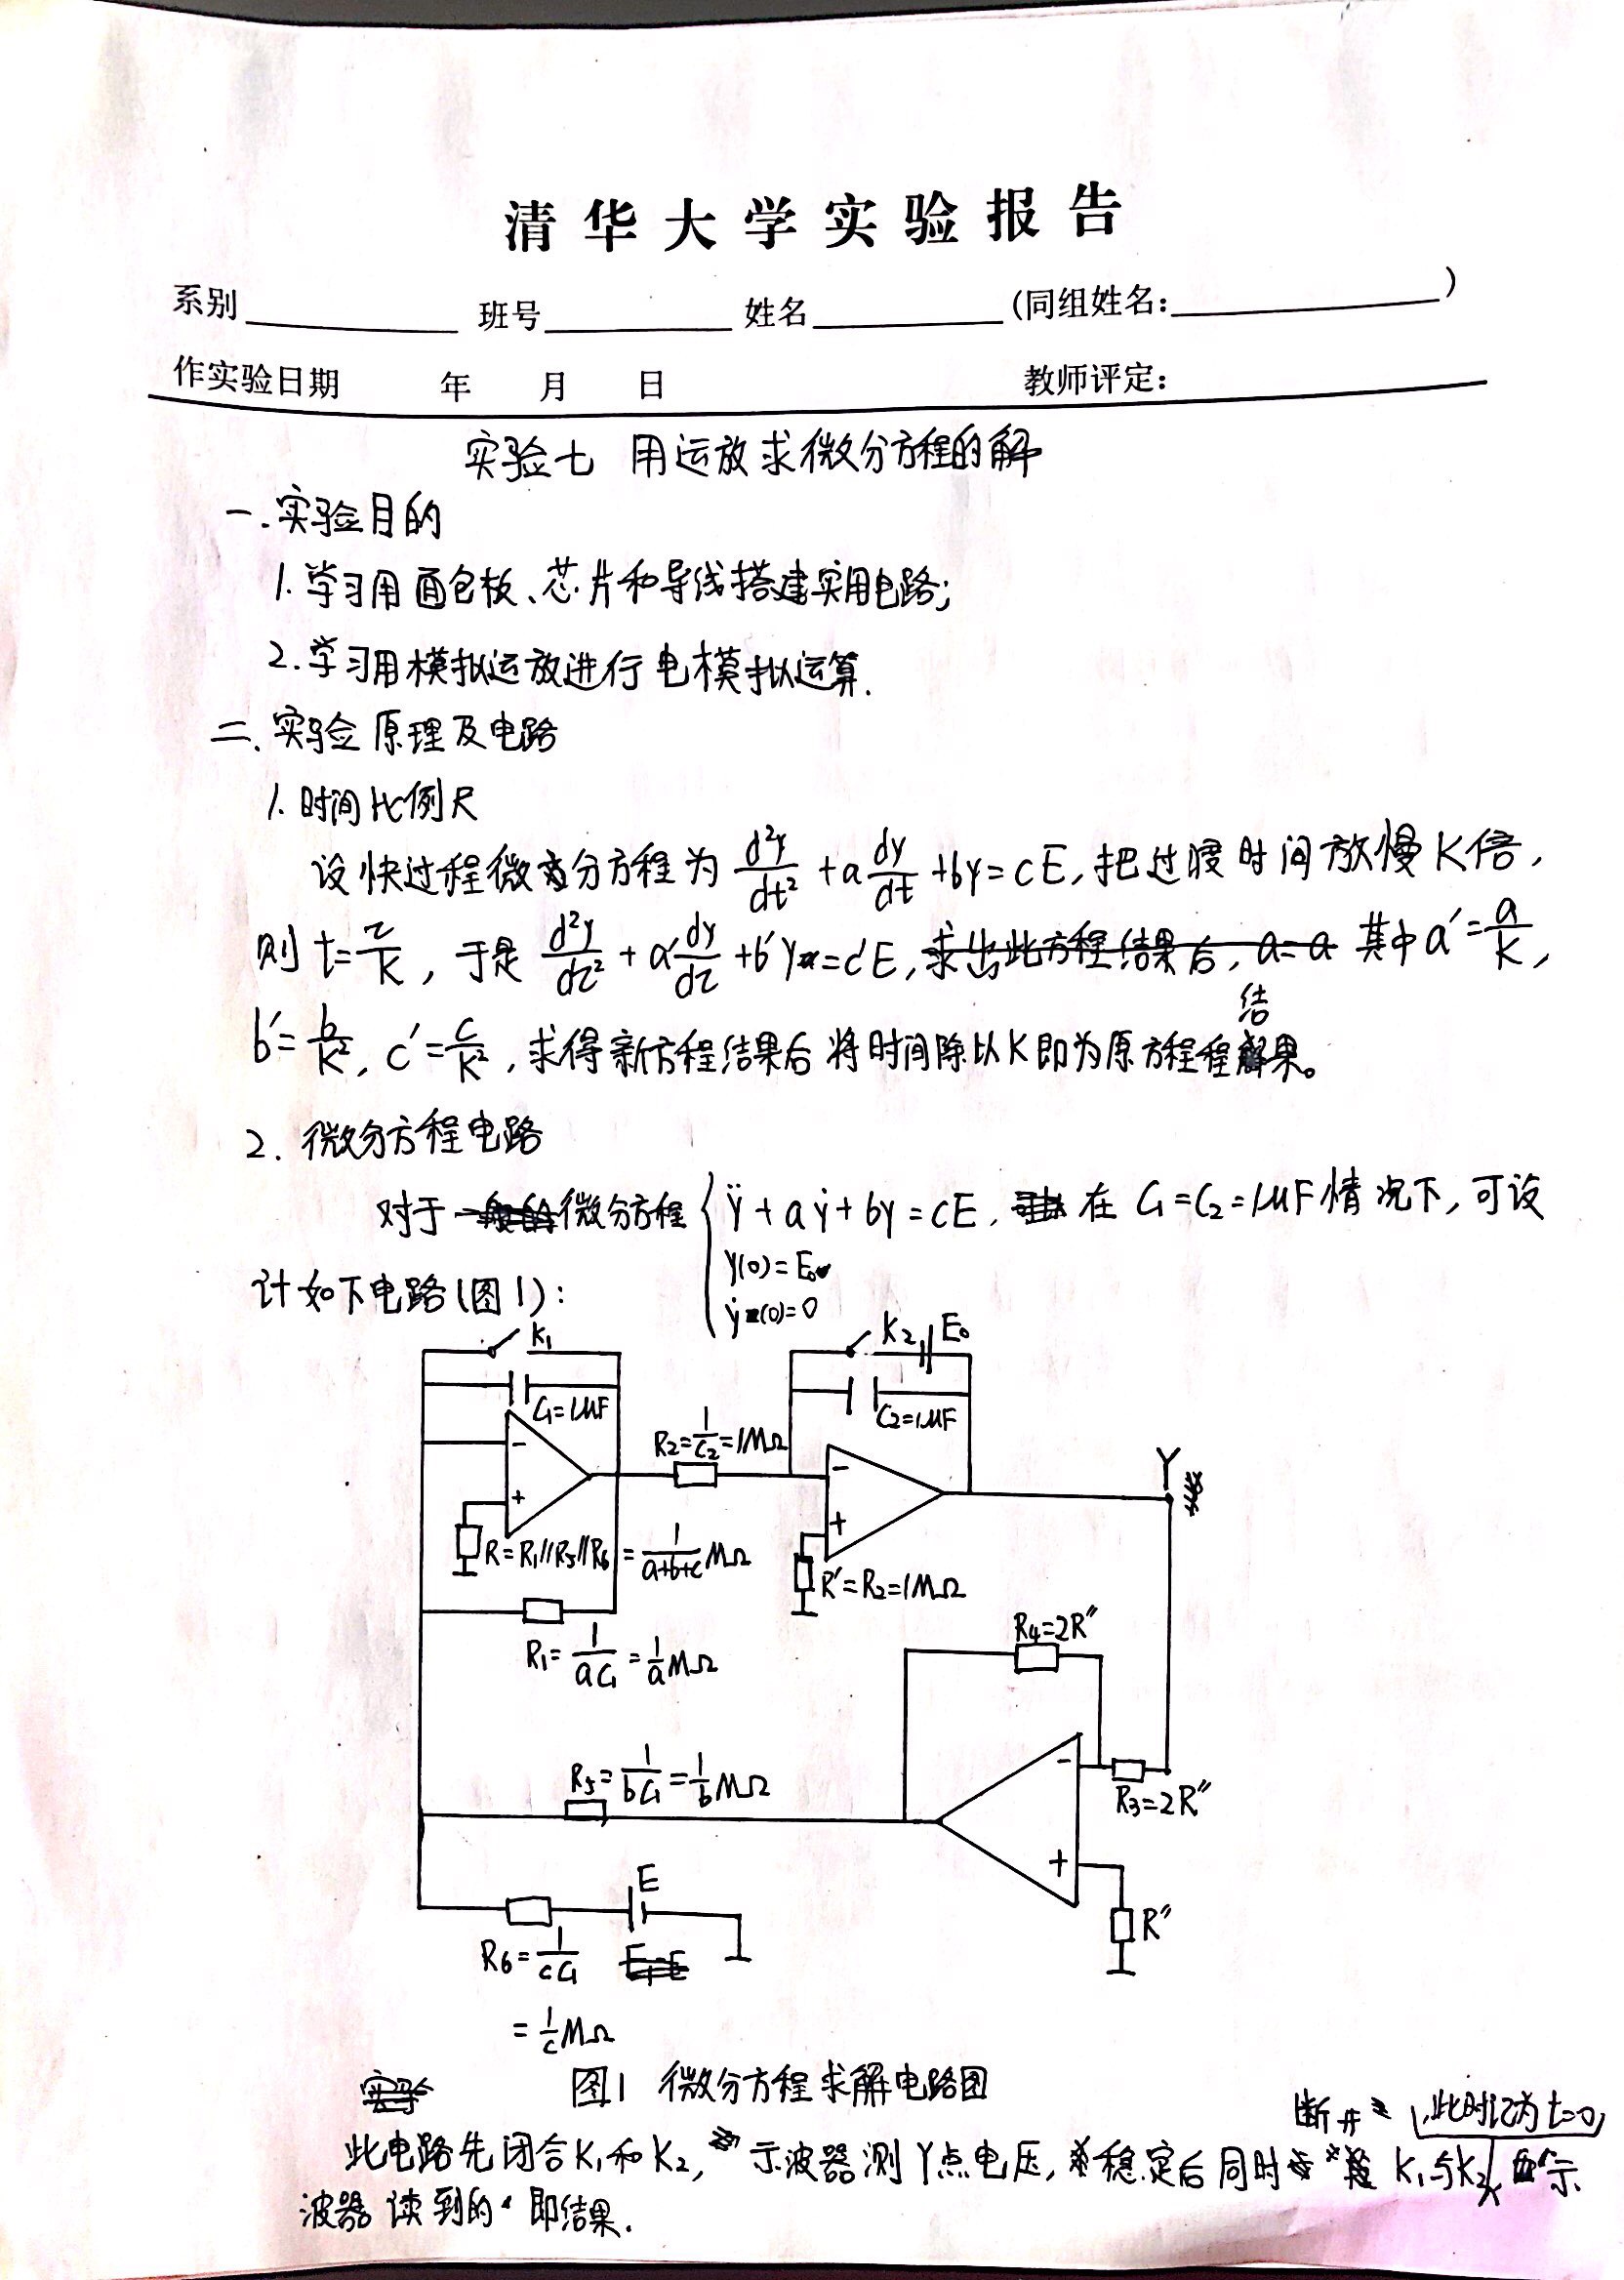 清华大学实验报告
系别 班号 姓名 (同组姓名: )
作实验日期 年 月 日 教师评定:
实验七 用运放求微分方程的解
一.实验目的
1.学习用面包板、芯片和导线搭建实用电路;
2.学习用模拟运放进行电模拟运算.
二.实验原理及电路
1.时间比例尺
设快过程微分方程为 d²y/dt² + a dy/dt + by = cE, 把过渡时间放慢K倍,
则 t = τ/K, 于是 d²y/dτ² + a' dy/dτ + b'y = c'E, 求出此方程结果后, a=a 其中 a' = a/K,
b' = b/K², c' = c/K², 求得新方程结果后将时间除以K即为原方程程结果。
2. 微分方程电路
对于一般的微分方程 { ÿ + aẏ + by = cE, 在 C₁=C₂=1μF情况下,可设
y(0)=E₀
ẏ(0)=0
计如下电路(图1):
K₁
K₂ E₀
C₁=1μF
C₂=1μF
R₂ = 1/C₂ = 1MΩ
Y
- +
- +
R=R₁//R₅//R₆ = 1/(a+b+c) MΩ
R'=R₂=1MΩ
R₁ = 1/(aC₁) = 1/a MΩ
R₄=2R″
R₅ = 1/(bC₁) = 1/b MΩ
- +
R₃=2R″
E
R″
R₆ = 1/(cC₁)
= 1/c MΩ
图1 微分方程求解电路图
断开 ,此时记为t=0,
此电路先闭合K₁和K₂, 示波器测Y点电压, 稳定后同时 K₁与K₂ 示
波器读到的 即结果.